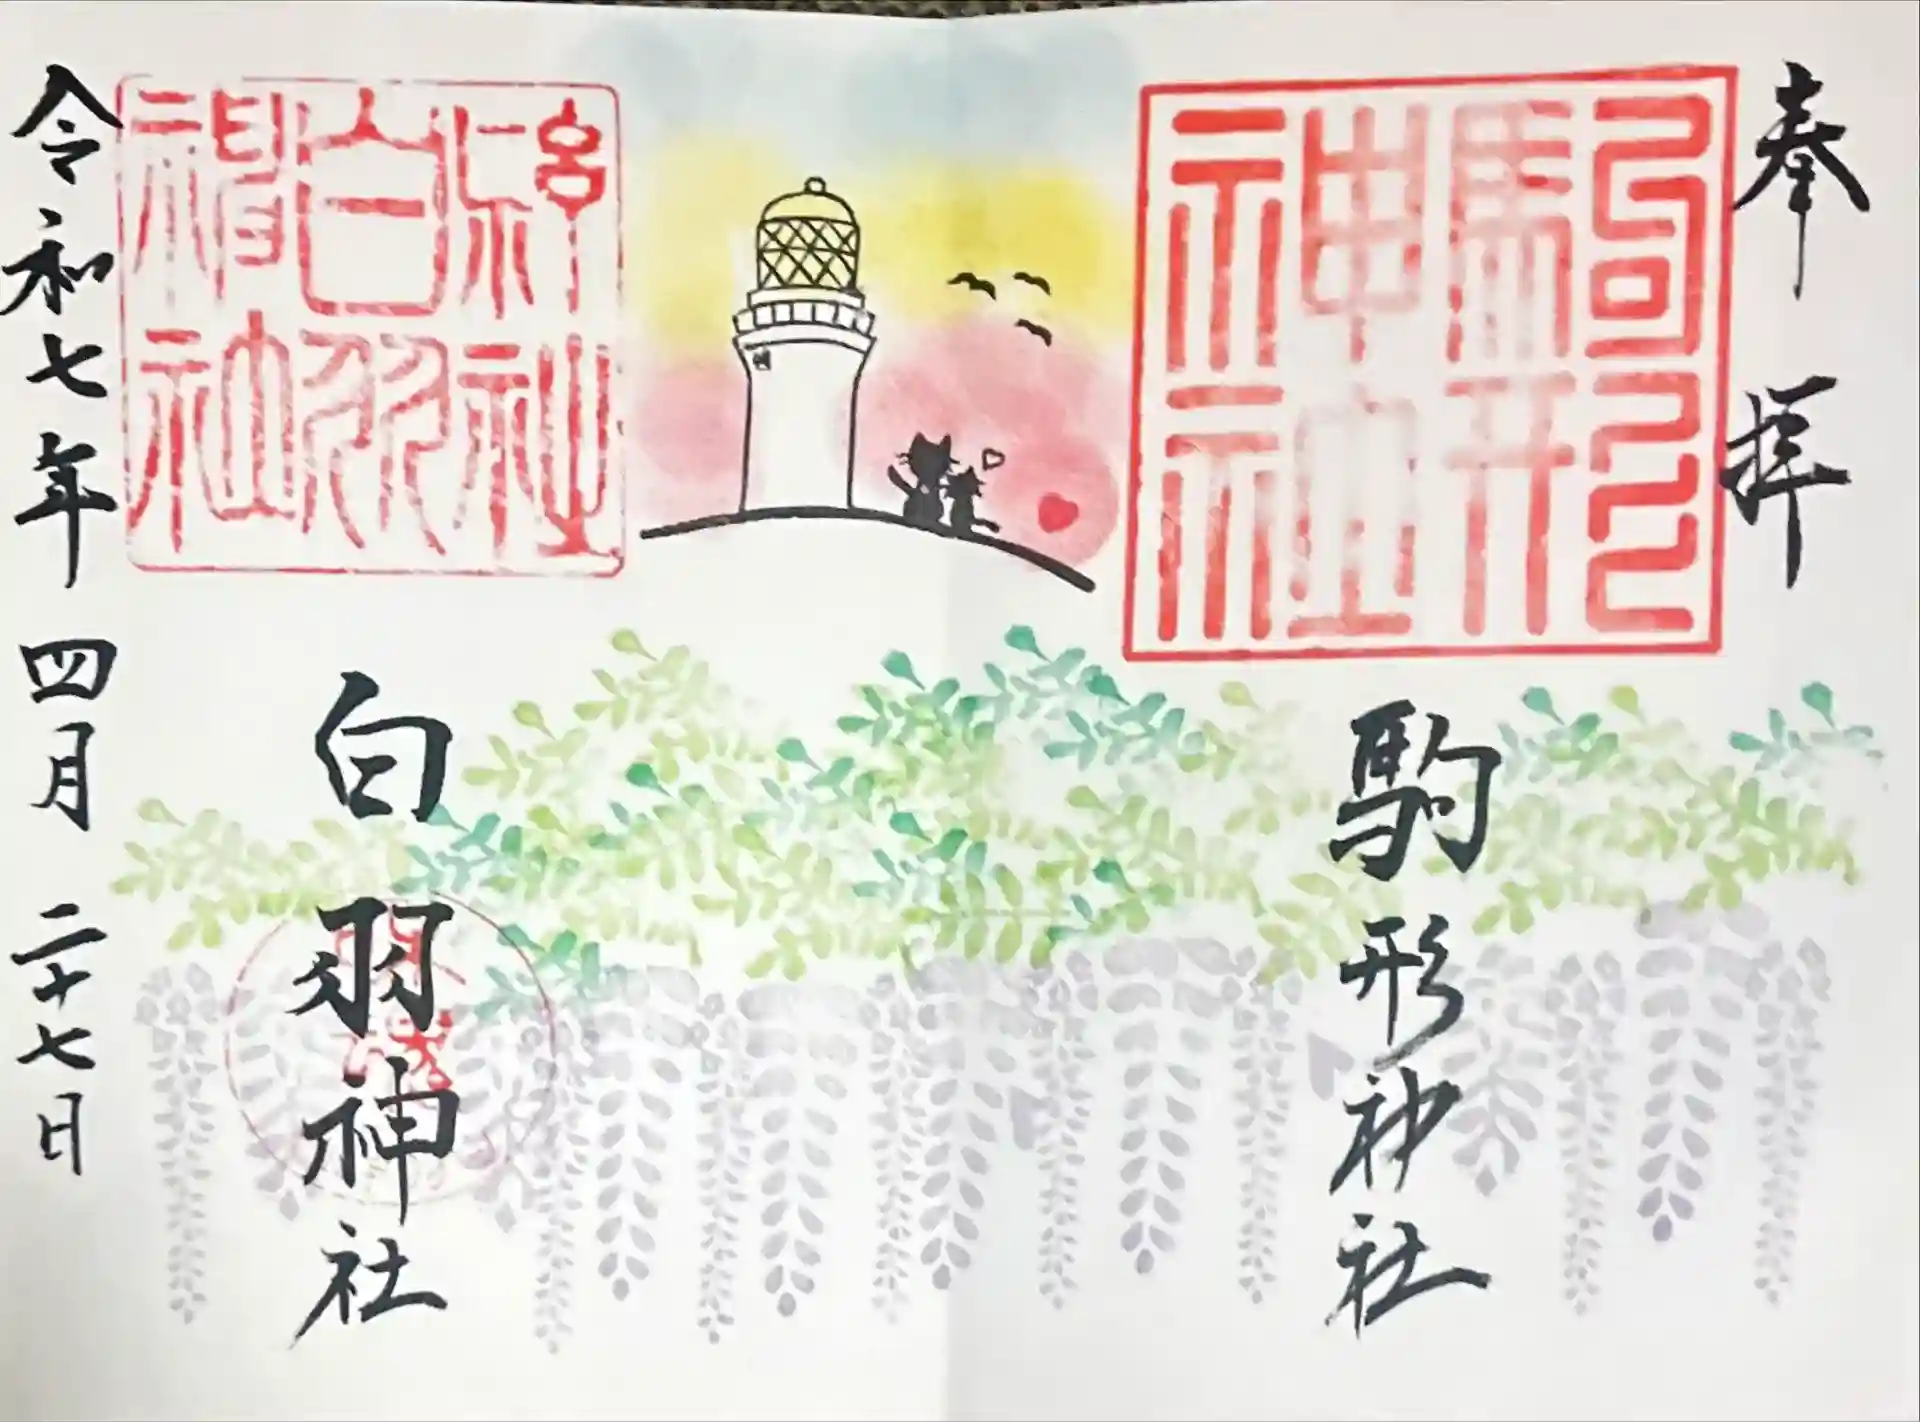 奉拝
駒形神社
駒形神社
白羽
神社
白羽神社
令和七年四月二十七日